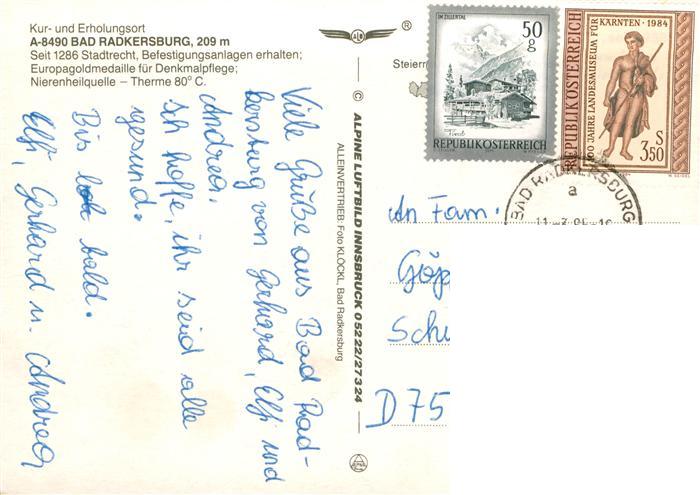 Kur- und Erholungsort
A-8490 BAD RADKERSBURG, 209 m
Seit 1286 Stadtrecht, Befestigungsanlagen erhalten;
Europagoldmedaille für Denkmalpflege;
Nierenheilquelle – Therme 80° C.
Viele Grüße aus Bad Rad-
kersburg von Gerhard, Elfi und
Andrea.
Ich hoffe, ihr seid alle
gesund.
Bis bald.
Elfi, Gerhard u. Andrea
© ALPINE LUFTBILD INNSBRUCK 05222/27324
ALLEINVERTRIEB: Foto KLÖCKL, Bad Radkersburg
®
Steierm
IM ZILLERTAL
50
g
REPUBLIK ÖSTERREICH
REPUBLIK ÖSTERREICH
100 JAHRE LANDESMUSEUM FÜR
KÄRNTEN · 1984
S
3.50
BAD RADKERSBURG
a
An Fam.
Göp
Sch
D 75